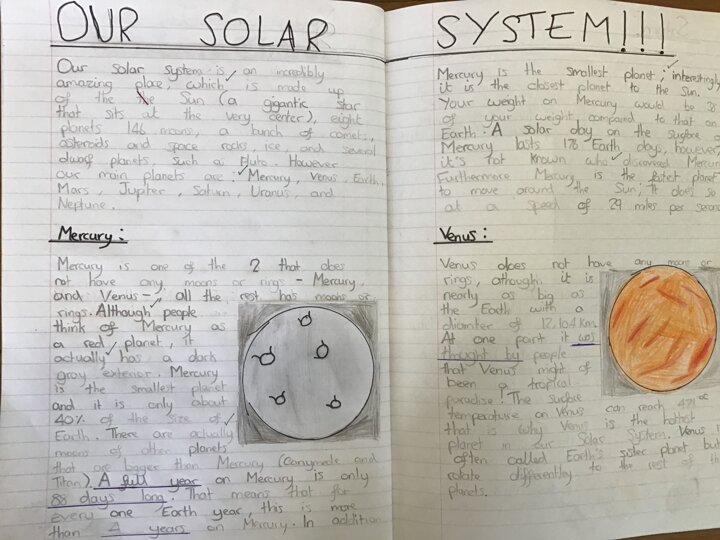 OUR SOLAR SYSTEM!!!
Our solar system is an incredibly
amazing place, which is made up
of the Sun (a gigantic star
that sits at the very center), eight
planets 146 moons, a bunch of comets,
asteroids and space rocks, ice, and several
dwarf planets, such a Pluto. However
our main planets are: Mercury, Venus, Earth,
Mars, Jupiter, Saturn, Uranus, and
Neptune.
Mercury:
Mercury is one of the 2 that does
not have any moons or rings - Mercury
and Venus -, all the rest has moons or
rings. Although people
think of Mercury as
a red planet, it
actually has a dark
gray exterior. Mercury
is the smallest planet
and it is only about
40% of the size of
Earth. There are actually
moons of other planets
that are bigger than Mercury (Ganymede and
Titan). A full year on Mercury is only
88 days long. That means that for
every one Earth year, this is more
than 4 years on Mercury. In addition
Mercury is the smallest planet; interestingly
it is the closest planet to the Sun.
Your weight on Mercury would be
of your weight compared to that on
Earth. A solar day on the surface of
Mercury lasts 176 Earth days, however
it's not known who discovered Mercury
Furthermore Mercury is the fastest planet
to move around the Sun; It does so
at a speed of 29 miles per second
Venus:
Venus does not have any moons or
rings, although it is
nearly as big as
the Earth with a
diameter of 12,104 Km.
At one point it was
thought by people
that Venus might of
been a tropical
paradise! The surface
temperature on Venus can reach 471°C
that is why Venus is the hottest
planet in our Solar System. Venus
often called Earth's sister planet but
rotate differently to the rest of the
planets.